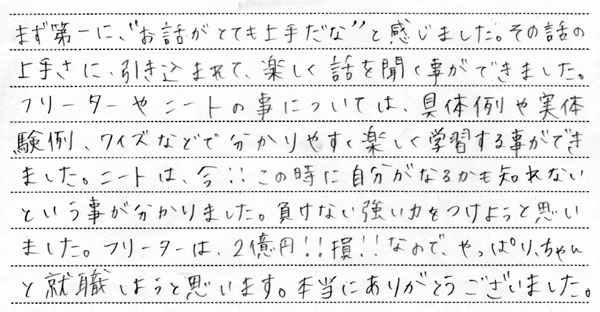 まず第一に、“お話がとても上手だな”と感じました。その話の
上手さに、引き込まれて、楽しく話を聞く事ができました。
フリーターやニートの事については、具体例や実体
験例、クイズなどで分かりやすく楽しく学習する事ができ
ました。ニートは、今!!この時に自分がなるかも知れない
という事が分かりました。負けない強い力をつけようと思い
ました。フリーターは、2億円!!損!!なので、やっぱり、ちゃん
と就職しようと思います。本当にありがとうございました。